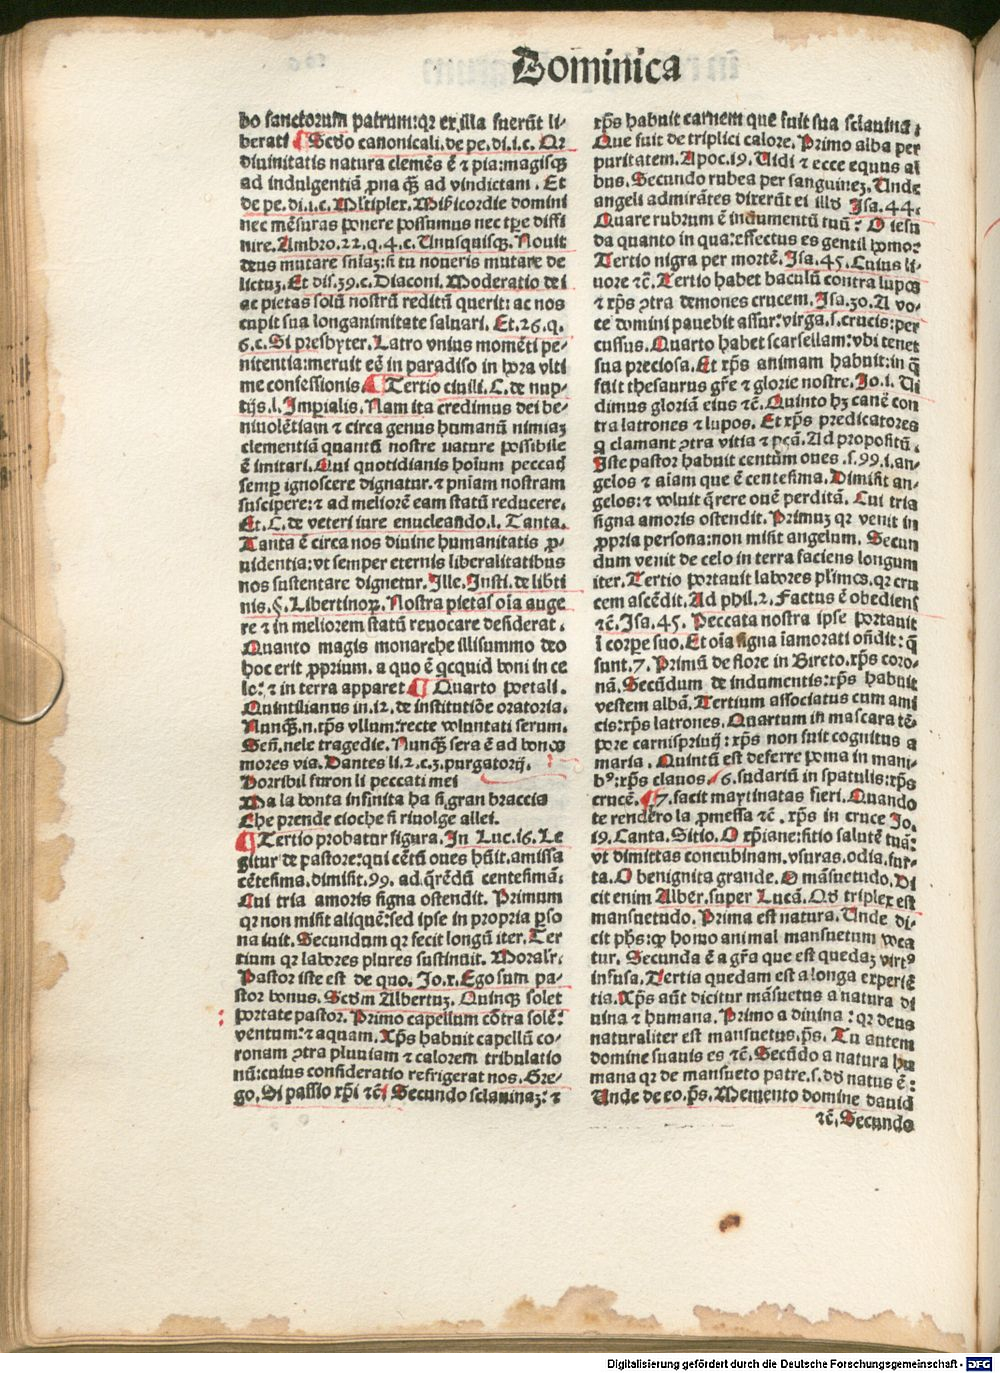 Dominica
bo sanctorum patrum: qꝛ ex illa fuerũt li-
berati ¶ Scḋo canonicali. de pe. di. i. c. Qꝛ
diuinitatis natura clemẽs ẽ ⁊ pia: magisqꝫ
ad indulgentiã ꝓna ꝙ̃ ad vindictam. Et
de pe. di. i. c. Mltiplex. Misericordie domini
nec mẽsuras ponere possumus nec tp̄e diffi
nire. Ambro. 22. q. 4. c. Unusquisqꝫ. Nouit
deus mutare sniaꝫ: si tu noueris mutare de
lictuꝫ. Et dis. 39. c. Diaconi. Moderatio dei
ac pietas solũ nostrũ reditũ querit: ac nos
cupit sua longanimitate saluari. Et. 26. q.
6. c. Si presbyter. Latro vnius momẽti pe-
nitentia: meruit eẽ in paradiso in hora vlti
me confessionis. ¶ Tertio ciuili. C. de nup-
tijs. l. Imperialis. Nam ita credimus dei be-
niuolẽtiam ⁊ circa genus humanũ nimiaꝫ
clementiã quantũ nostre nature possibile
ẽ imitari. Qui quotidianis hoĩum peccaꝭ
semꝑ ignoscere dignatur. ⁊ pn̄iam nostram
suscipere: ⁊ ad meliorẽ eam statũ reducere.
Et. C. de veteri iure enucleando. l. Tanta.
Tanta ẽ circa nos diuine humanitatis ꝓ-
uidentia: vt semper eternis liberalitatibus
nos sustentare dignetur. Ille. Insti. de liberti
nis. §. Libertinoꝝ. Nostra pietas oĩa auge
re ⁊ in meliorem statũ reuocare desiderat.
Quanto magis monarche illi summo deo
hoc erit ꝓprium. a quo ẽ qcquid boni in ce
lo: ⁊ in terra apparet ¶ Quarto poetali.
Quintilianus in. 12. de institutiõe oratoria.
Nunqꝫ. n. tp̄s vllum: recte voluntati serum.
Señ. nele tragedie. Nunqꝫ sera ẽ ad bonos
mores via. Dantes li. 2. c. 3. purgatorij.
Horribil furon li peccati mei
Ma la bonta infinita ha si gran braccia
Che prende cioche si riuolge allei.
¶ Tertio probatur figura. In Luc. 16. Le
gitur de pastore: qui cẽtũ oues hũit. amissa
cẽtesima. dimisit. 99. ad q̃rẽdũ centesimã.
Cui tria amoris signa ostendit. Primum
qꝛ non misit aliquẽ: sed ipse in propria ꝑso
na iuit. Secundum qꝛ fecit longũ iter. Ter
tium qꝛ labores plures sustinuit. Moralr̃.
Pastor iste est de quo. Jo. x. Ego sum pa-
stor bonus. Scḋm Albertuꝫ. Quinqꝫ solet
portate pastor. Primo capellum cõtra solẽ:
ventum: ⁊ aquam. Xp̄s habuit capellũ co-
ronam ↄtra pluuiam ⁊ calorem tribulatio
nũ: cuius consideratio refrigerat nos. Gre-
go. Si passio xp̄i ⁊c̃ Secundo sclauinaꝫ: ⁊
xp̄s habuit carnem que fuit sua sclauina:
Que fuit de triplici calore. Primo alba per
puritatem. Apoc. 19. Uidi ⁊ ecce equus al
bus. Secundo rubea per sanguineꝫ. Unde
angeli admirãtes dixerũt ei illḋ Isa. 44.
Quare rubrum ẽ indumentũ tuũ: O iesu
da quanto in qua: effectus es gentil homo:
Tertio nigra per mortẽ. Isa. 45. Cuius li-
uore ⁊c̃. Tertio habet baculũ contra lupos
⁊ xp̄s ↄtra demones crucem. Isa. 30. A vo-
ce domini pauebit assur: virga. s. crucis: per
cussus. Quarto habet scarsellam: vbi tenet
sua preciosa. Et xp̄s animam habuit: in q̃
fuit thesaurus gr̃e ⁊ glorie nostre. Jo. i. Ui
dimus gloriã eius ⁊c̃. Quinto hꝫ canẽ con
tra latrones ⁊ lupos. Et xp̄s predicatores
q clamant ↄtra vitia ⁊ pc̃ã. Ad propositũ.
Iste pastor habuit centum oues. s. 99. i. an-
gelos ⁊ aĩam que ẽ centesima. Dimisit an-
gelos: ⁊ voluit q̃rere ouẽ perditã. Cui tria
signa amoris ostendit. Primuꝫ qꝛ venit in
ꝓpria persona: non misit angelum. Secun
dum venit de celo in terra faciens longum
iter. Tertio portauit labores pl̃imos. qꝛ cru
cem ascẽdit. Ad phil. 2. Factus ẽ obediens
⁊c̃. Isa. 45. Peccata nostra ipse portauit
ĩ corꝑe suo. Et oĩa signa ĩamorati oñdit: q̃
sunt. 7. Primũ de flore in Bireto. xp̄s coro-
nã. Secũdum de indumentis: xp̄s habuit
vestem albã. Tertium associatus cum ami
cis: xp̄s latrones. Quartum in mascara tẽ-
pore carnispriuij: xp̄s non fuit cognitus a
maria. Quintũ est deferre poma in mani-
bꝰ: xp̄s clauos. 6. sudariũ in spatulis: xp̄s
crucẽ. ¶ 7. facit maytinatas fieri. Quando
te rendero la ꝓmessa ⁊c̃. xp̄s in cruce Jo.
19. Canta. Sitio. O xp̄iane: sitio salutẽ tuã:
vt dimittas concubinam. vsuras. odia. fur-
ta. O benignita grande. O mãsuetudo. Di
cit enim Alber. super Lucã. Oḋ triplex est
mansuetudo. Prima est natura. Unde di-
cit ph̃s: ꝙ homo animal mansuetum voca
tur. Secunda ẽ a gr̃a que est quedaꝫ virtꝰ
infusa. Tertia quedam est a longa experiẽ
tia. Xp̄s aũt dicitur mãsuetus a natura di
uina ⁊ humana. Primo a diuina: qꝛ deus
naturaliter est mansuetus. p̄s. Tu autem
domine suauis es ⁊c̃. Secũdo a natura hu
mana qꝛ de mansueto patre. s. dḋ natus ẽ:
Unde de eo. p̄s. Memento domine dauid
⁊c̃. Secundo
Digitalisierung gefördert durch die Deutsche Forschungsgemeinschaft - DFG